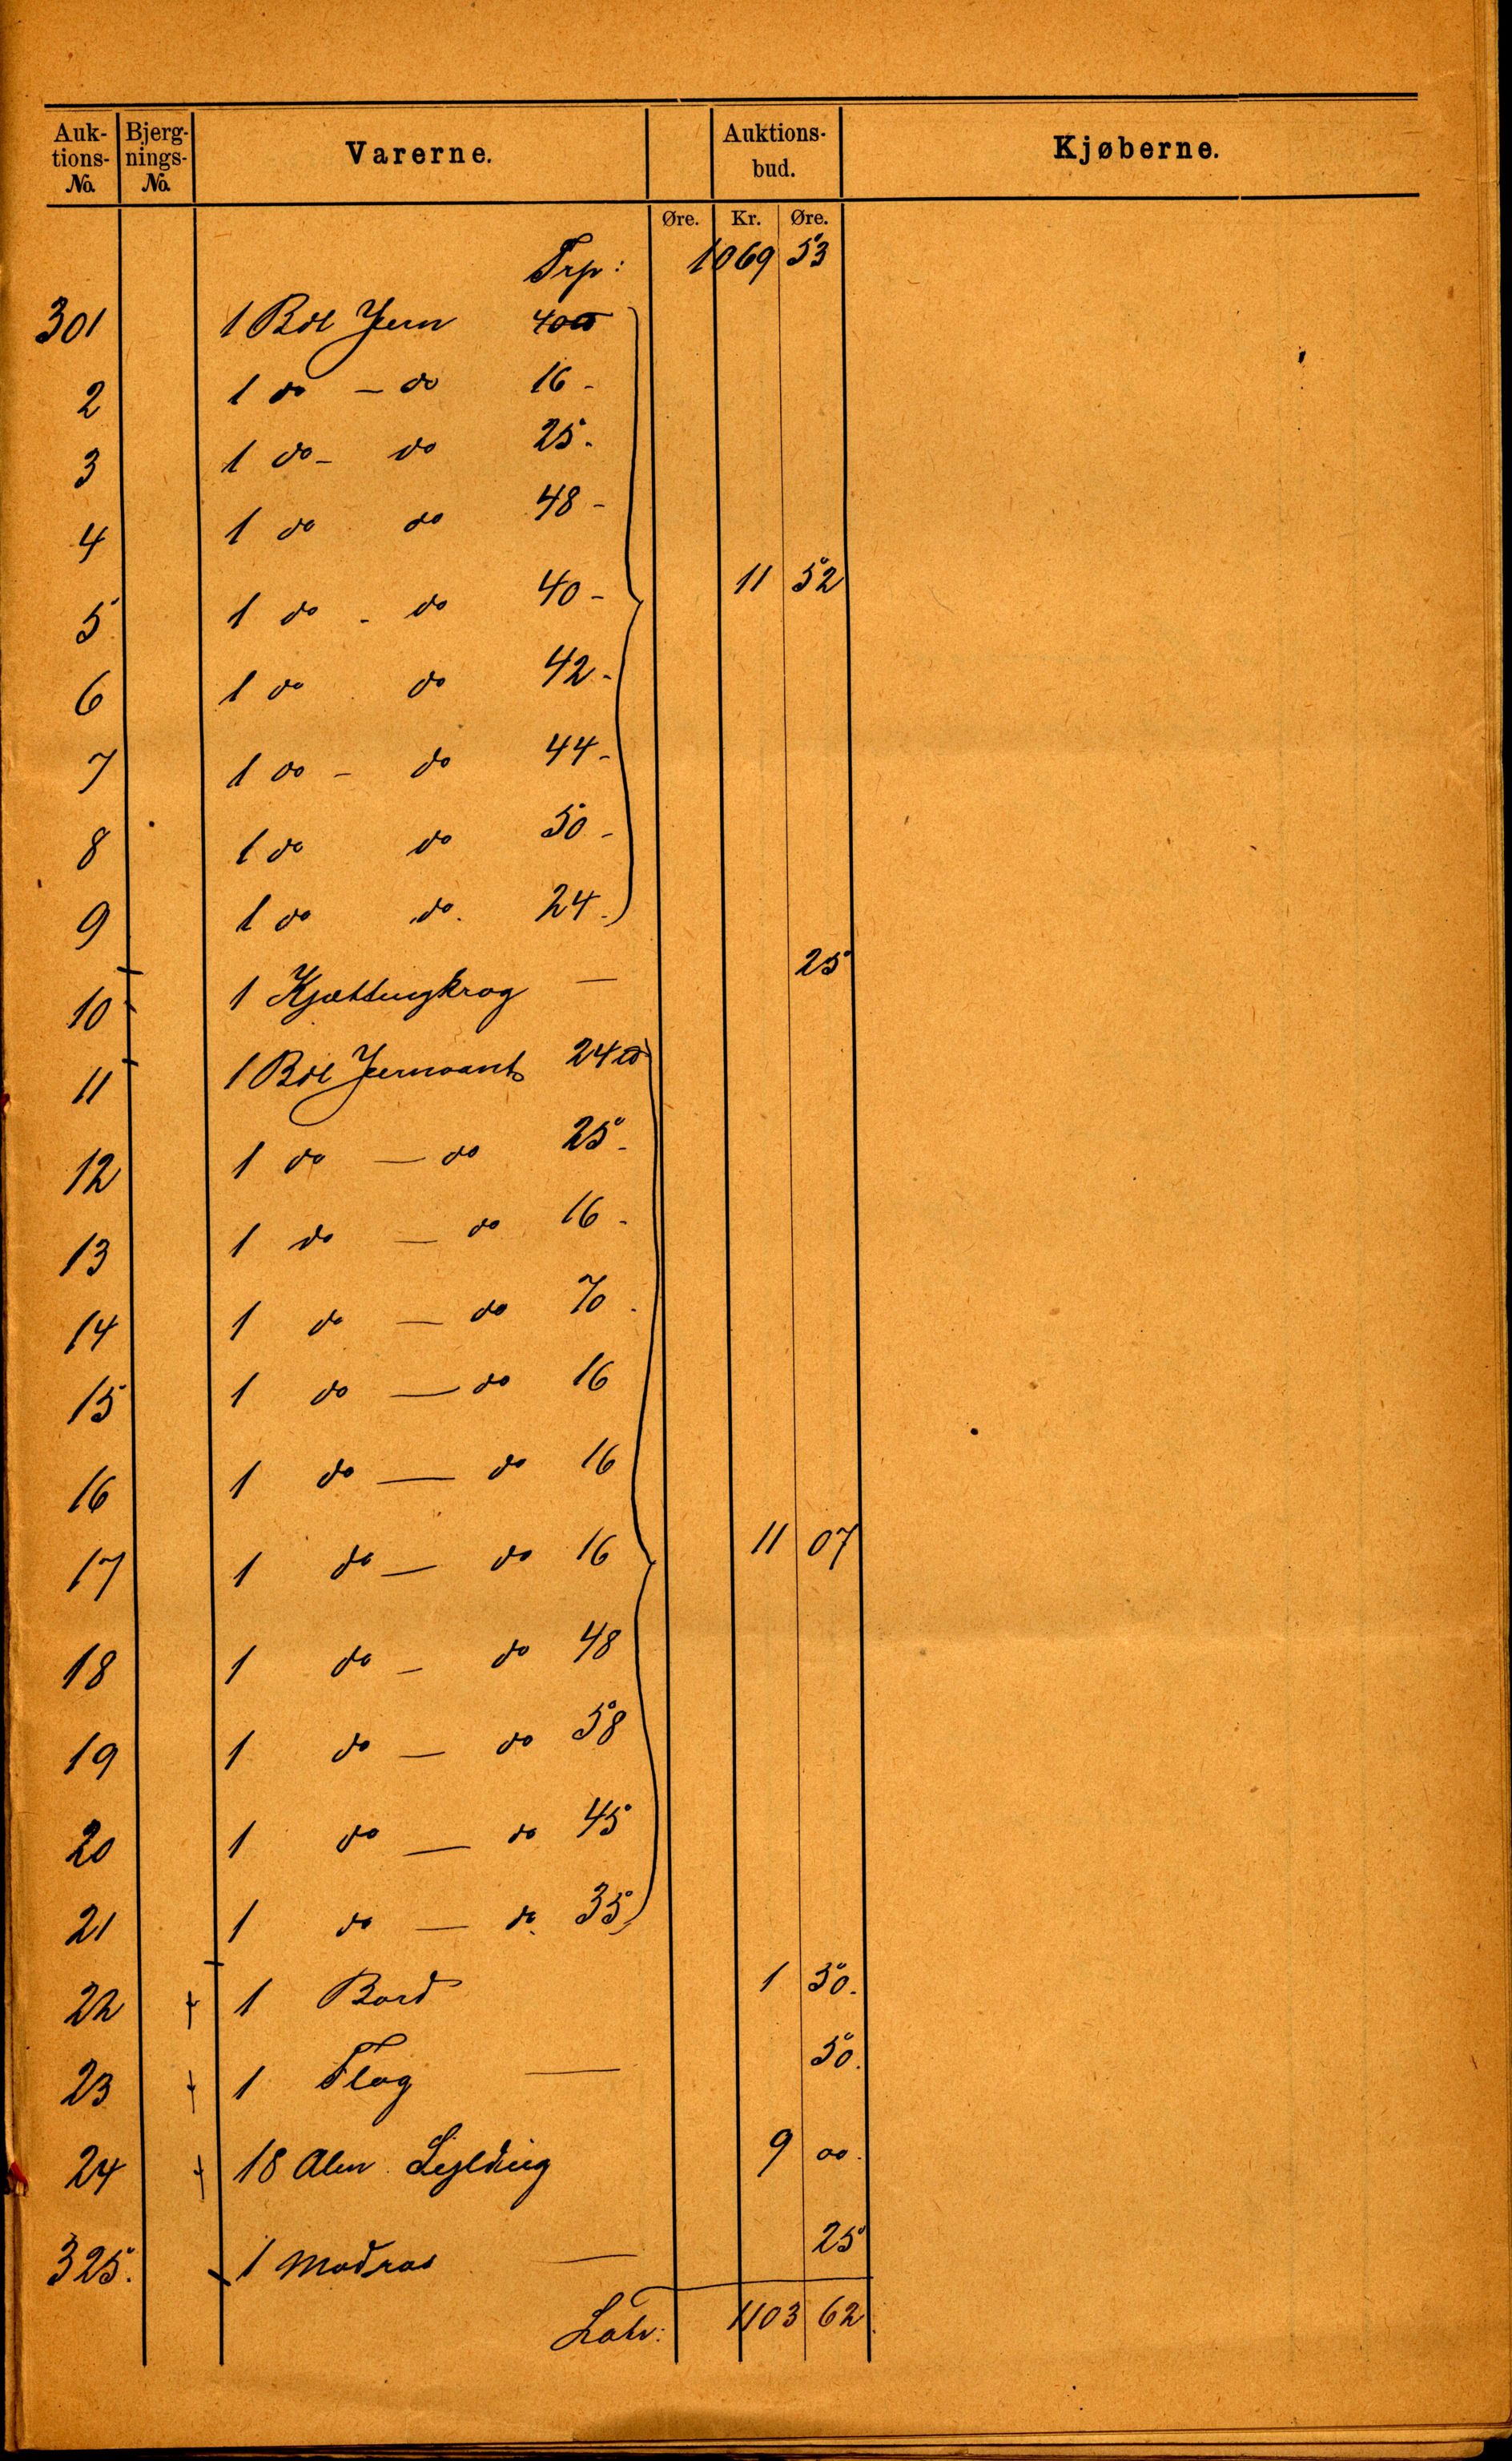 Auktions- No. Bjergnings- No. Varerne. Auktionsbud. Kjøberne.
Øre. Kr. Øre.
Trp: 1069 53
301 1 Bdl Jern 40 ℔
2 1 do - do 16 -
3 1 do - do 25 -
4 1 do do 48 -
5 1 do - do 40 - 11 52
6 1 do do 42 -
7 1 do - do 44 -
8 1 do do 50 -
9 1 do do 24 -
10 1 Kjættingkrog — 25
11 1 Bdl Jernvant 24 ℔
12 1 do — do 25 -
13 1 do — do 16 -
14 1 do — do 70 -
15 1 do — do 16
16 1 do — do 16
17 1 do — do 16 11 07
18 1 do - do 48
19 1 do — do 58
20 1 do — do 45
21 1 do — do 35
22 1 Bord 1 50.
23 1 Flag — 50.
24 18 Alen 9 00.
325. 1 Madras — 25
Latr: 1103 62